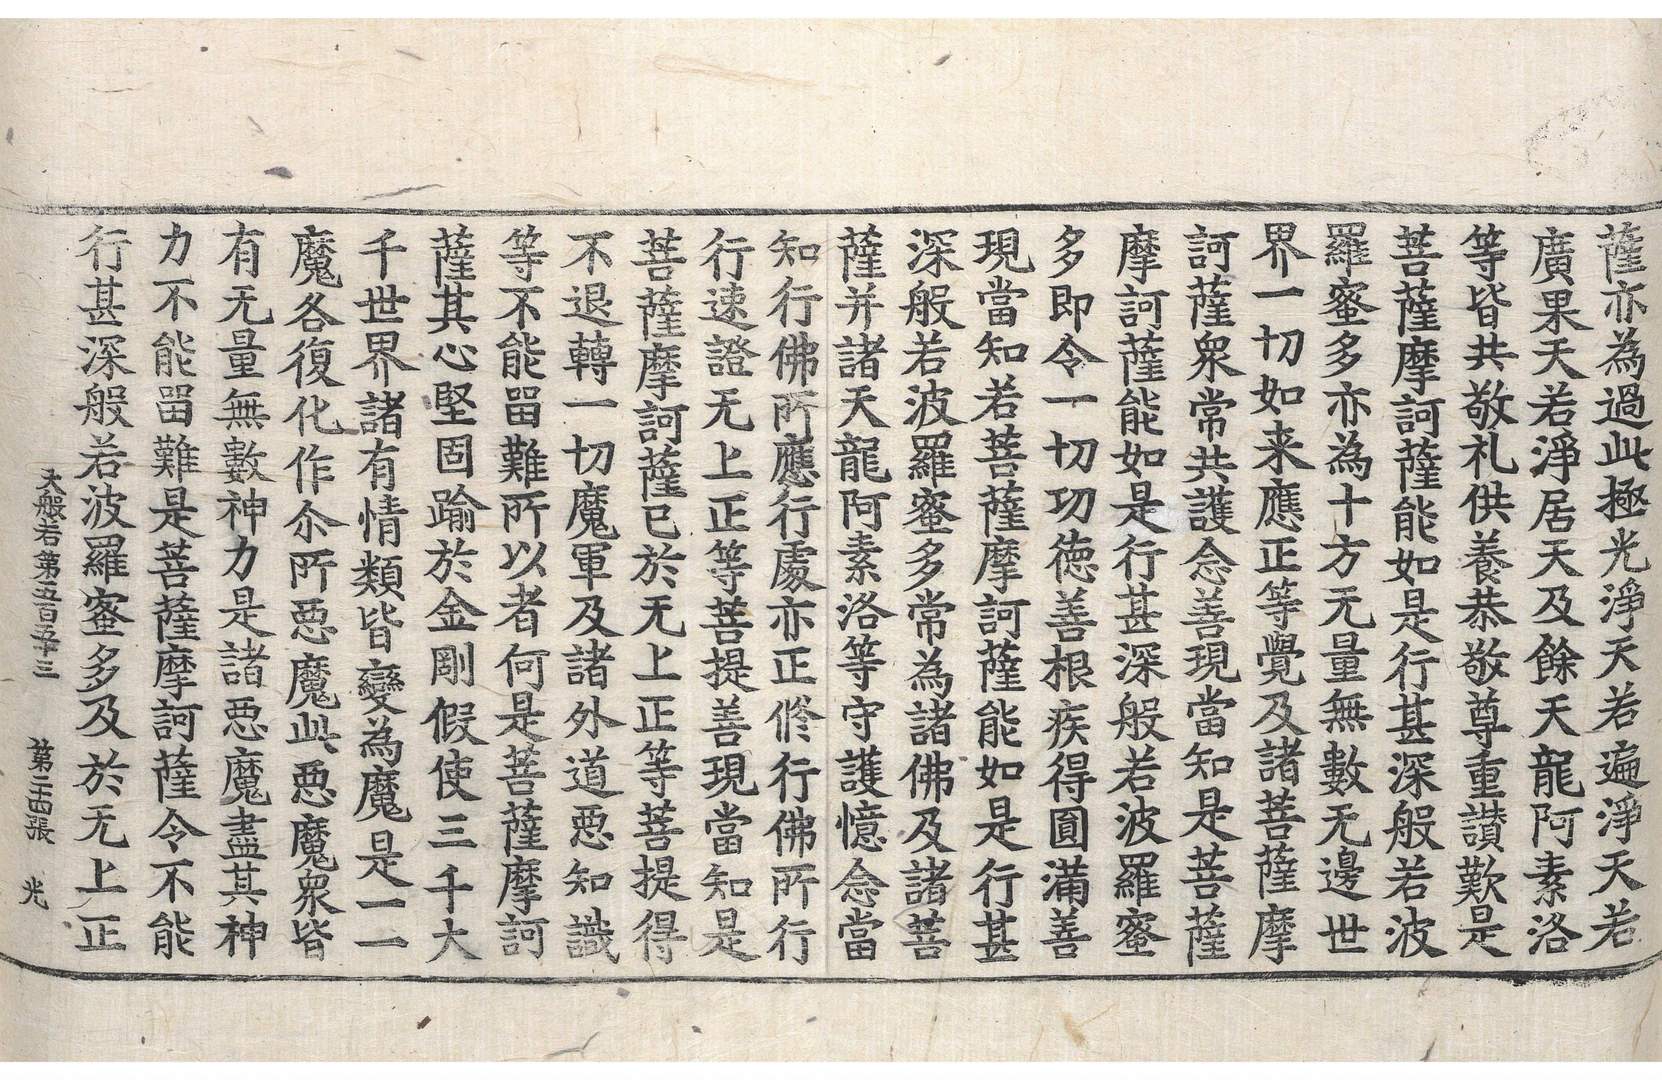 薩亦為過此極光淨天若遍淨天若
廣果天若淨居天及餘天龍阿素洛
等皆共敬礼供養恭敬尊重讃歎是
菩薩摩訶薩能如是行甚深般若波
羅蜜多亦為十方无量無數无邊世
界一切如来應正等覺及諸菩薩摩
訶薩衆常共護念善現當知是菩薩
摩訶薩能如是行甚深般若波羅蜜
多即令一切功德善根疾得圎滿善
現當知若菩薩摩訶薩能如是行甚
深般若波羅蜜多常為諸佛及諸菩
薩并諸天龍阿素洛等守護憶念當
知行佛所應行處亦正修行佛所行
行速證无上正等菩提善現當知是
菩薩摩訶薩已於无上正等菩提得
不退轉一切魔軍及諸外道惡知識
等不能留難所以者何是菩薩摩訶
薩其心堅固踰於金剛假使三千大
千世界諸有情類皆變為魔是一一
魔各復化作尒所惡魔此惡魔衆皆
有无量無數神力是諸惡魔盡其神
力不能留難是菩薩摩訶薩令不能
行甚深般若波羅蜜多及於无上正
大般若第五百五十三 第二十四張 光